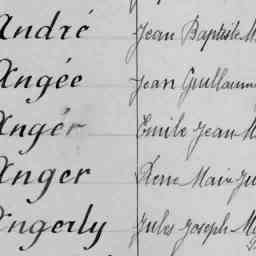 André Jean Baptiste M
Angée Jean Guillaume
Angér Emile Jean M
Anger Rene Marie Ju
Angerly Jules Joseph M